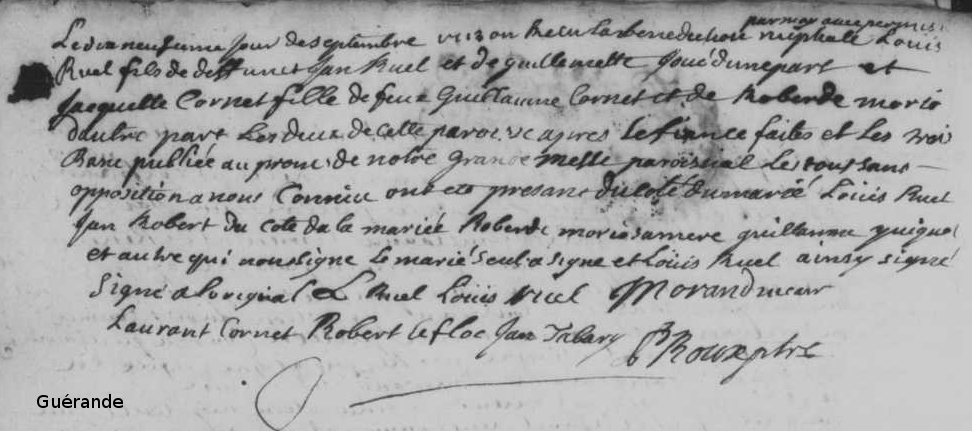 par moy avec permis
Le dix neufieme Jour de septembre 1713 on Receu La benediction nuptialle Louis
Ruel fils de deffunct Jan Ruel et de guillemette Joué dune part et
Jacquelle Cornet fille de feue Guillaume Cornet et de Roberde morio
dautre part Les deux de cette paroisse apres Les fiance faites et Les trois
Banc publiée au prone de notre Grande Messe paroissial Le tout sans
opposition a nous Connüe ont ete presant du coté du marié Loüis Ruel
Jan Robert du cote de la mariée Roberde morio sa mere guillaume
et autre qui nont signe Le marié seul a signe et Loüis Ruel ainsy signé
Signé a Loriginal L Ruel Loüis Ruel Morand vicair
Laurant Cornet Robert Lefloc Jan Tabary P Roux ptre
Guérande